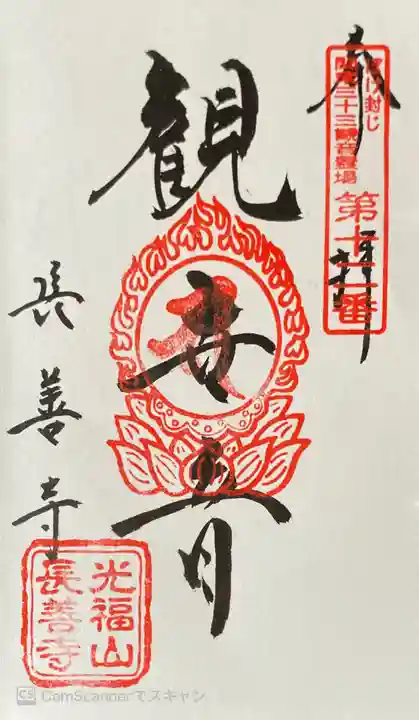 奉拝
ぼけ封じ
関東三十三観音霊場
第 番
観世音
長善寺
光福山
長善寺
CS CamScannerでスキャン